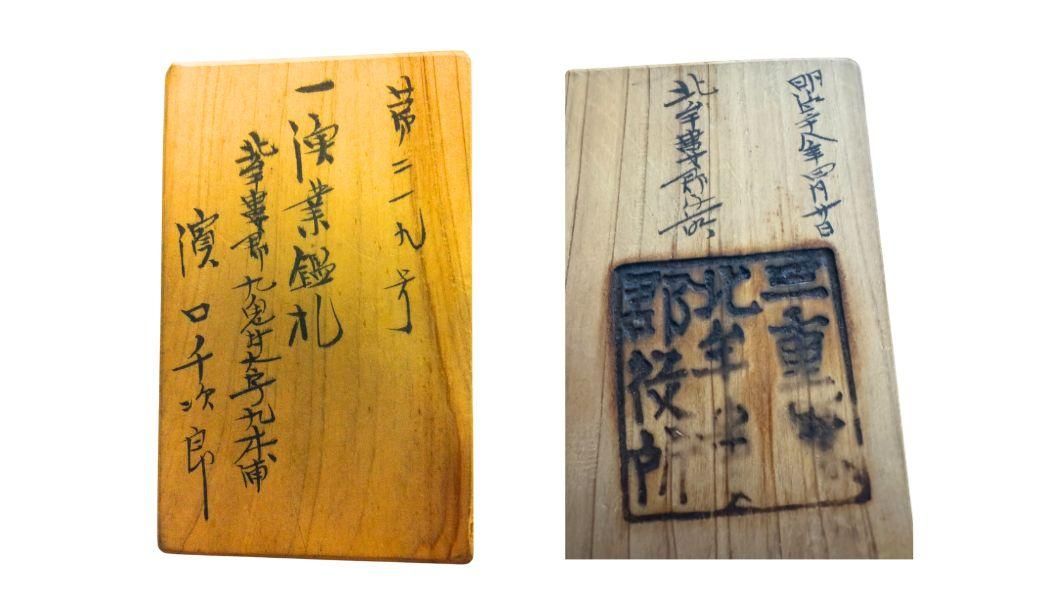 第二一九号
一漁業鑑札
北牟婁郡九鬼村大字九木浦
濱口千次郎
明治 八年四月廿日
北牟婁郡役所
三重縣
北牟婁
郡役所